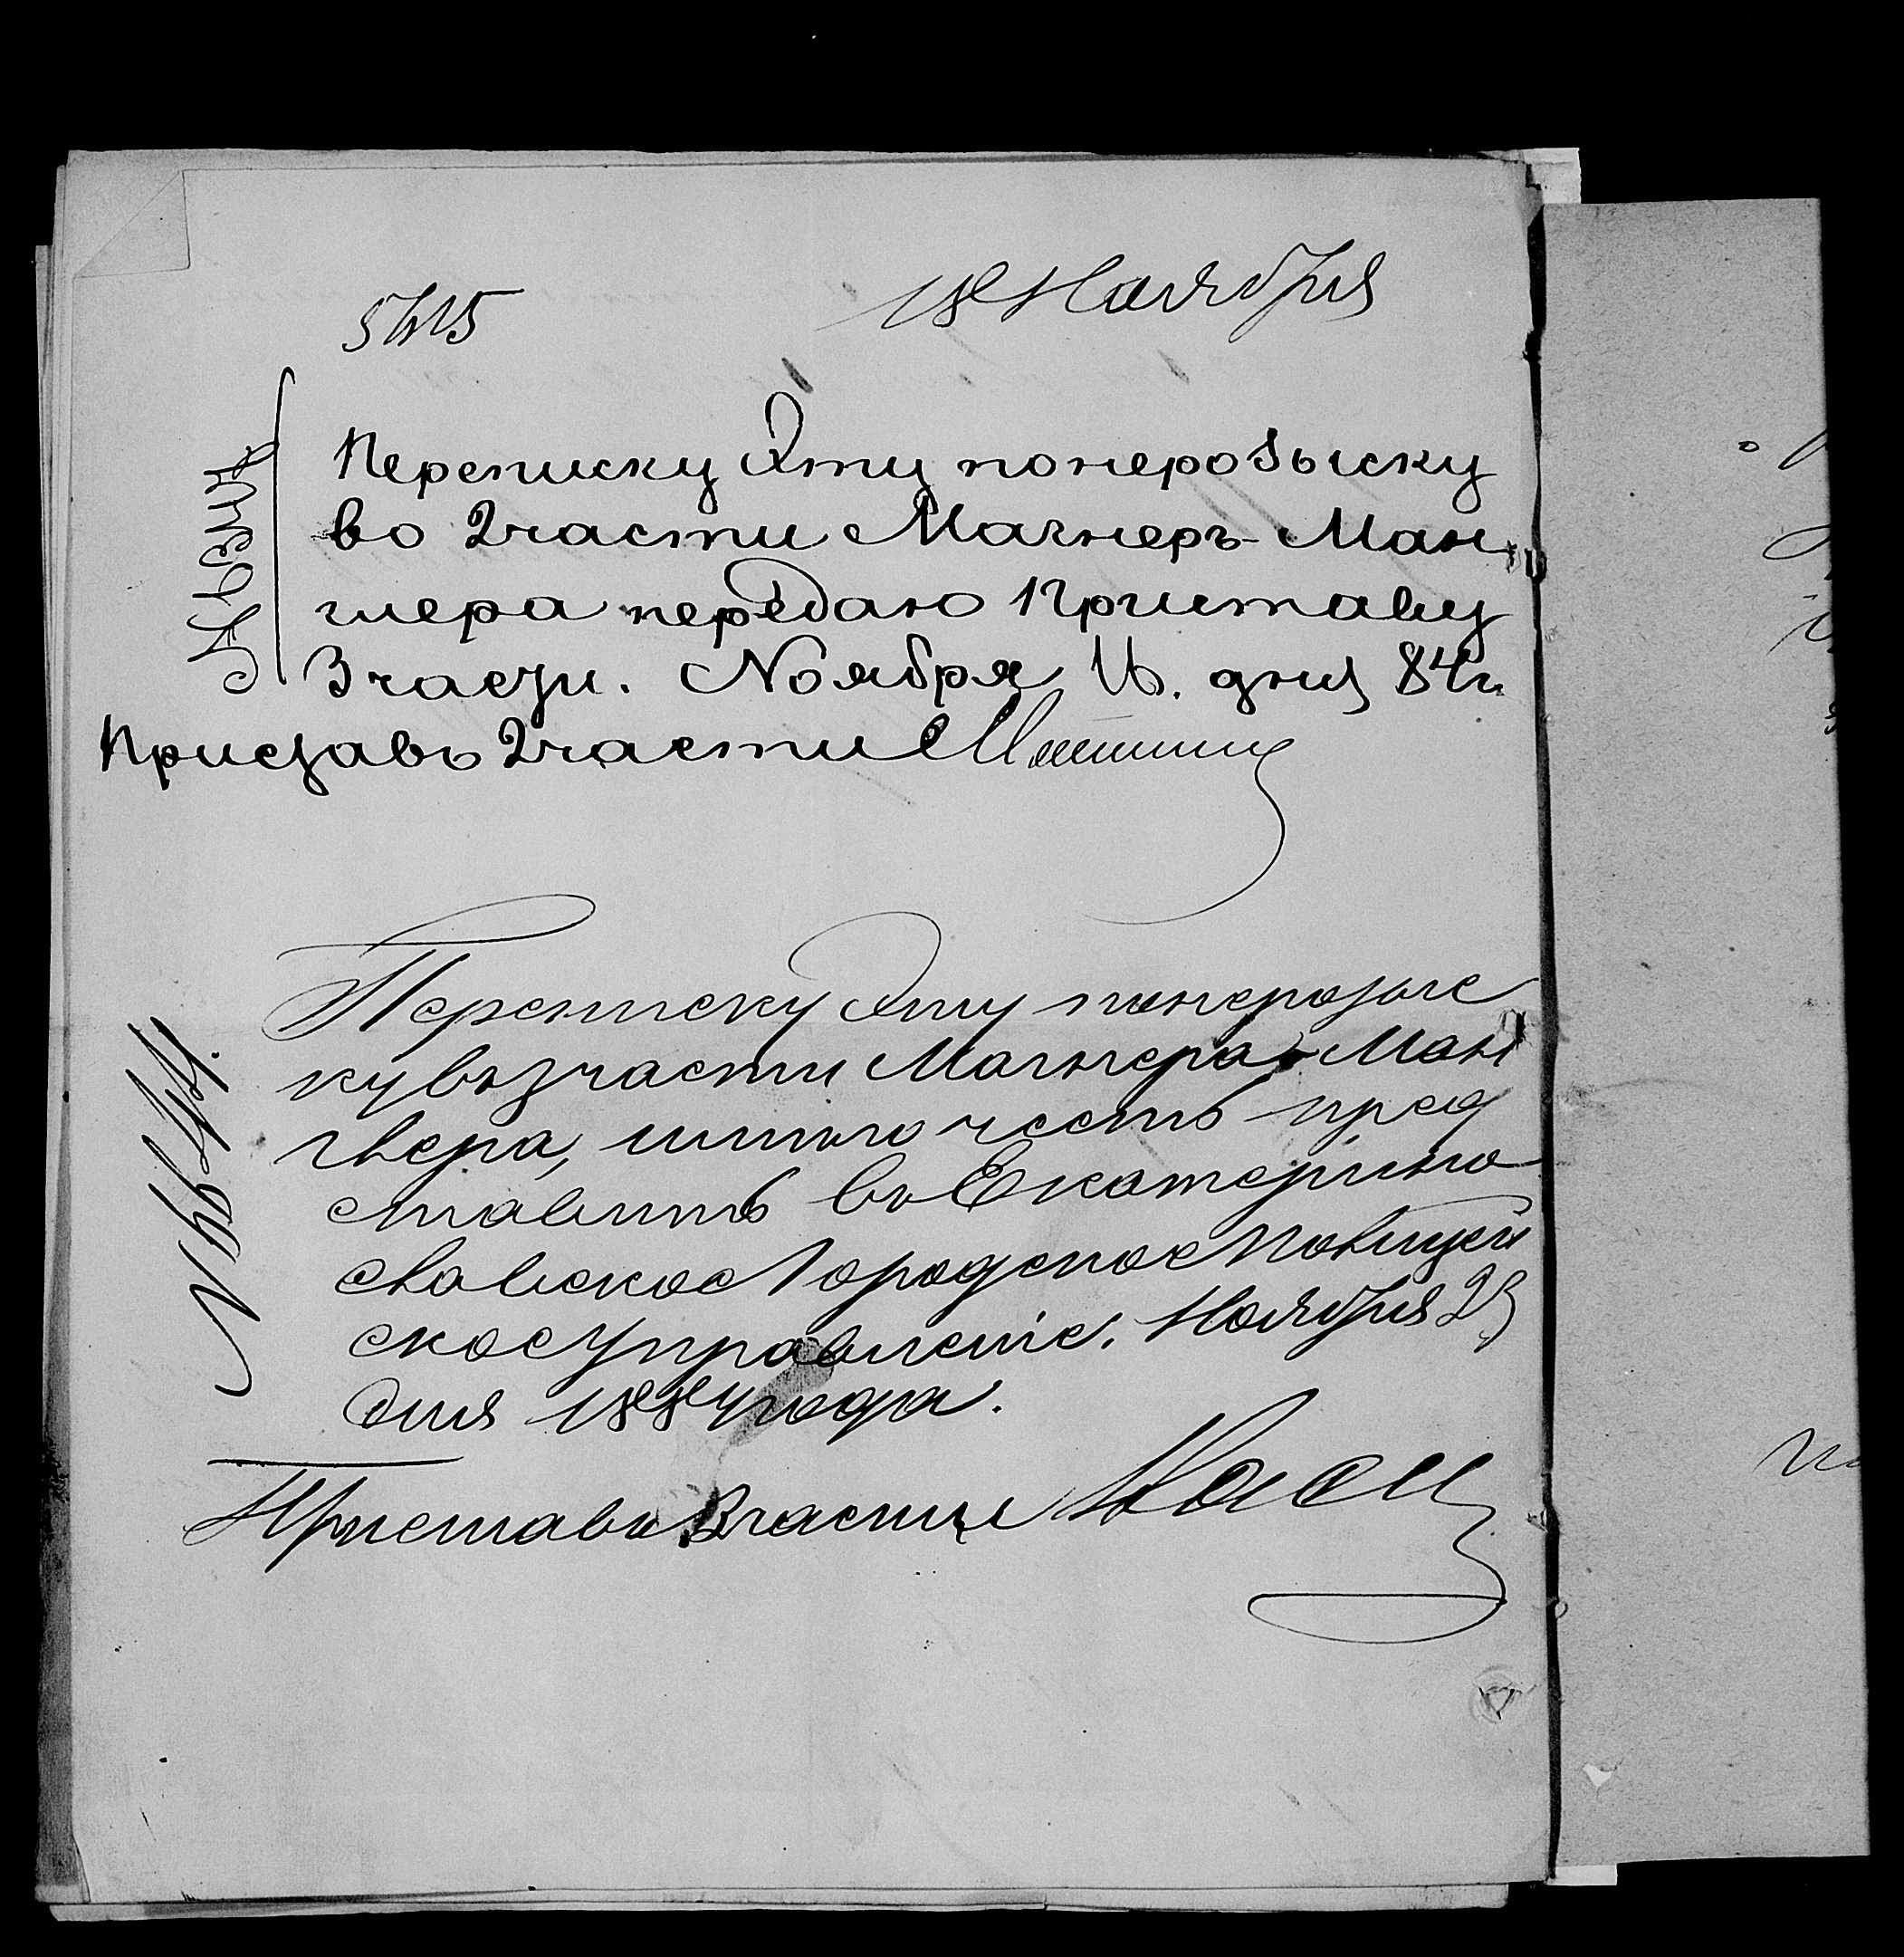 5415 18 Ноября
Переписку эту понерозыску
во 2 части Магнеръ Ман
гмера передаю Приставу
3 части. Ноября 16. дня 84 г.
Приставъ 2 части
Переписку эту понерозыс
ку въ 3 части Магнера Ман
гвера, имѣю честь пред
ставить въ Екатерино
славское Городское Полицей
ское Управленіе. Ноября 23
дня 1884 года.
Приставъ 3 части